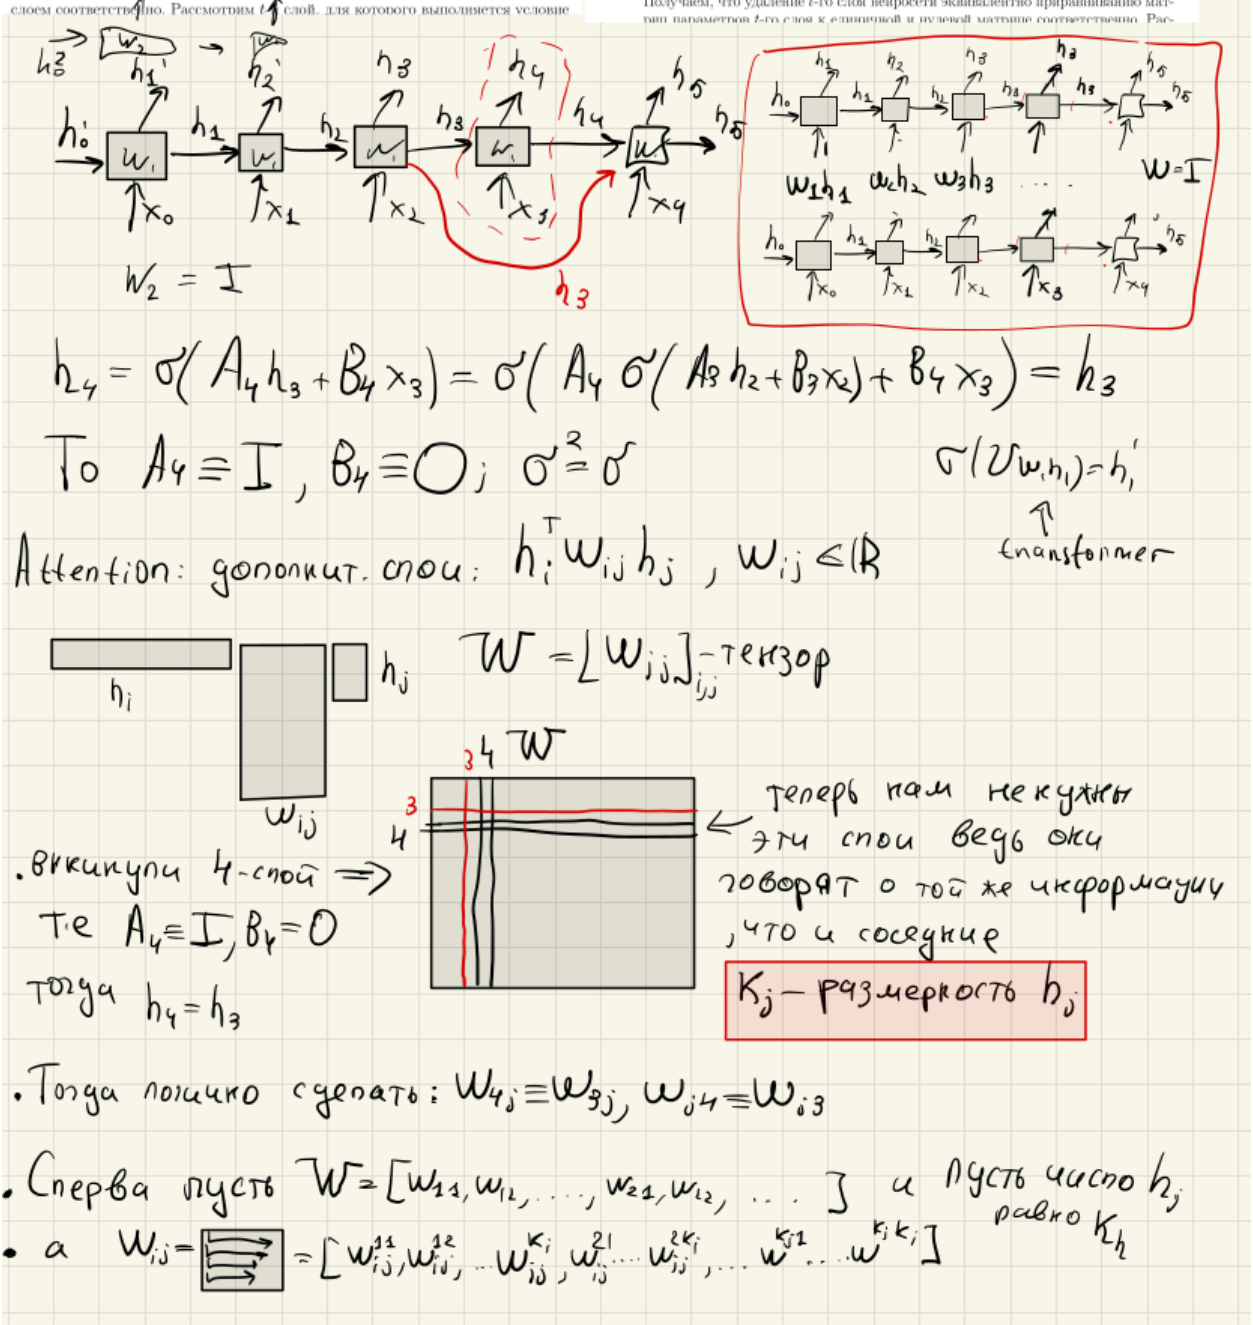 слоем соответственно. Рассмотрим t слой, для которого выполняется условие
Получаем, что удаление t-го слоя нейросети эквивалентно приравниванию мат-
риц параметров t-го слоя к единичной и нулевой матрице соответственно. Рас-
W₂ →
h₁' h₂' h₃ h₄ h₅
h₀ W₁ h₁ W₁ h₂ W₁ h₃ W₁ h₄ W₁ h₅
x₀ x₁ x₂ x₃ x₄
h₃
W₂ = I
h₁ h₂ h₃ h₃ h₅
h₀ h₁ h₂ h₃ h₃ h₅
W₁h₁ W₂h₂ W₃h₃ .... W=I
h₀ h₁ h₂ h₅
x₀ x₁ x₂ x₃ x₄
h₄ = σ(A₄h₃ + B₄x₃) = σ(A₄ σ(A₃h₂+B₃x₂) + B₄x₃) = h₃
То A₄ ≡ I, B₄ ≡ O; σ² = σ
σ(Uw₁h₁) = h₁'
↑
transformer
Attention: дополнит. слои: hᵢᵀ Wᵢⱼ hⱼ , Wᵢⱼ ∈ ℝ
hᵢ Wᵢⱼ hⱼ
W = [Wᵢⱼ]ᵢ,ⱼ - тензор
3 4 W
3
4
теперь нам не нужны
эти слои ведь они
говорят о той же информации
, что и соседние
Kⱼ – размерность hⱼ
. выкинули 4-слой ⇒
т.е A₄ ≡ I, B₄ = O
тогда h₄ = h₃
. Тогда логично сделать: W₄ⱼ ≡ W₃ⱼ, Wⱼ₄ ≡ Wⱼ₃
. Сперва пусть W = [W₁₁, W₁₂, ...., W₂₁, W₁₂, ....] и пусть число hⱼ
равно Kₕ
. а Wᵢⱼ = = [Wᵢⱼ¹¹, Wᵢⱼ¹², ... Wᵢⱼᴷⁱ, Wᵢⱼ²¹ ... Wᵢⱼ²ᴷⁱ, ... Wᴷʲ¹ .... Wᴷʲᴷⁱ]